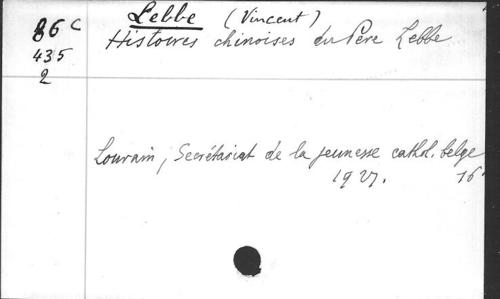 86 C
435
2
Lebbe (Vincent)
Histoires chinoises du Père Lebbe
Louvain, Secrétariat de la jeunesse cathol. belge
1927. 16°